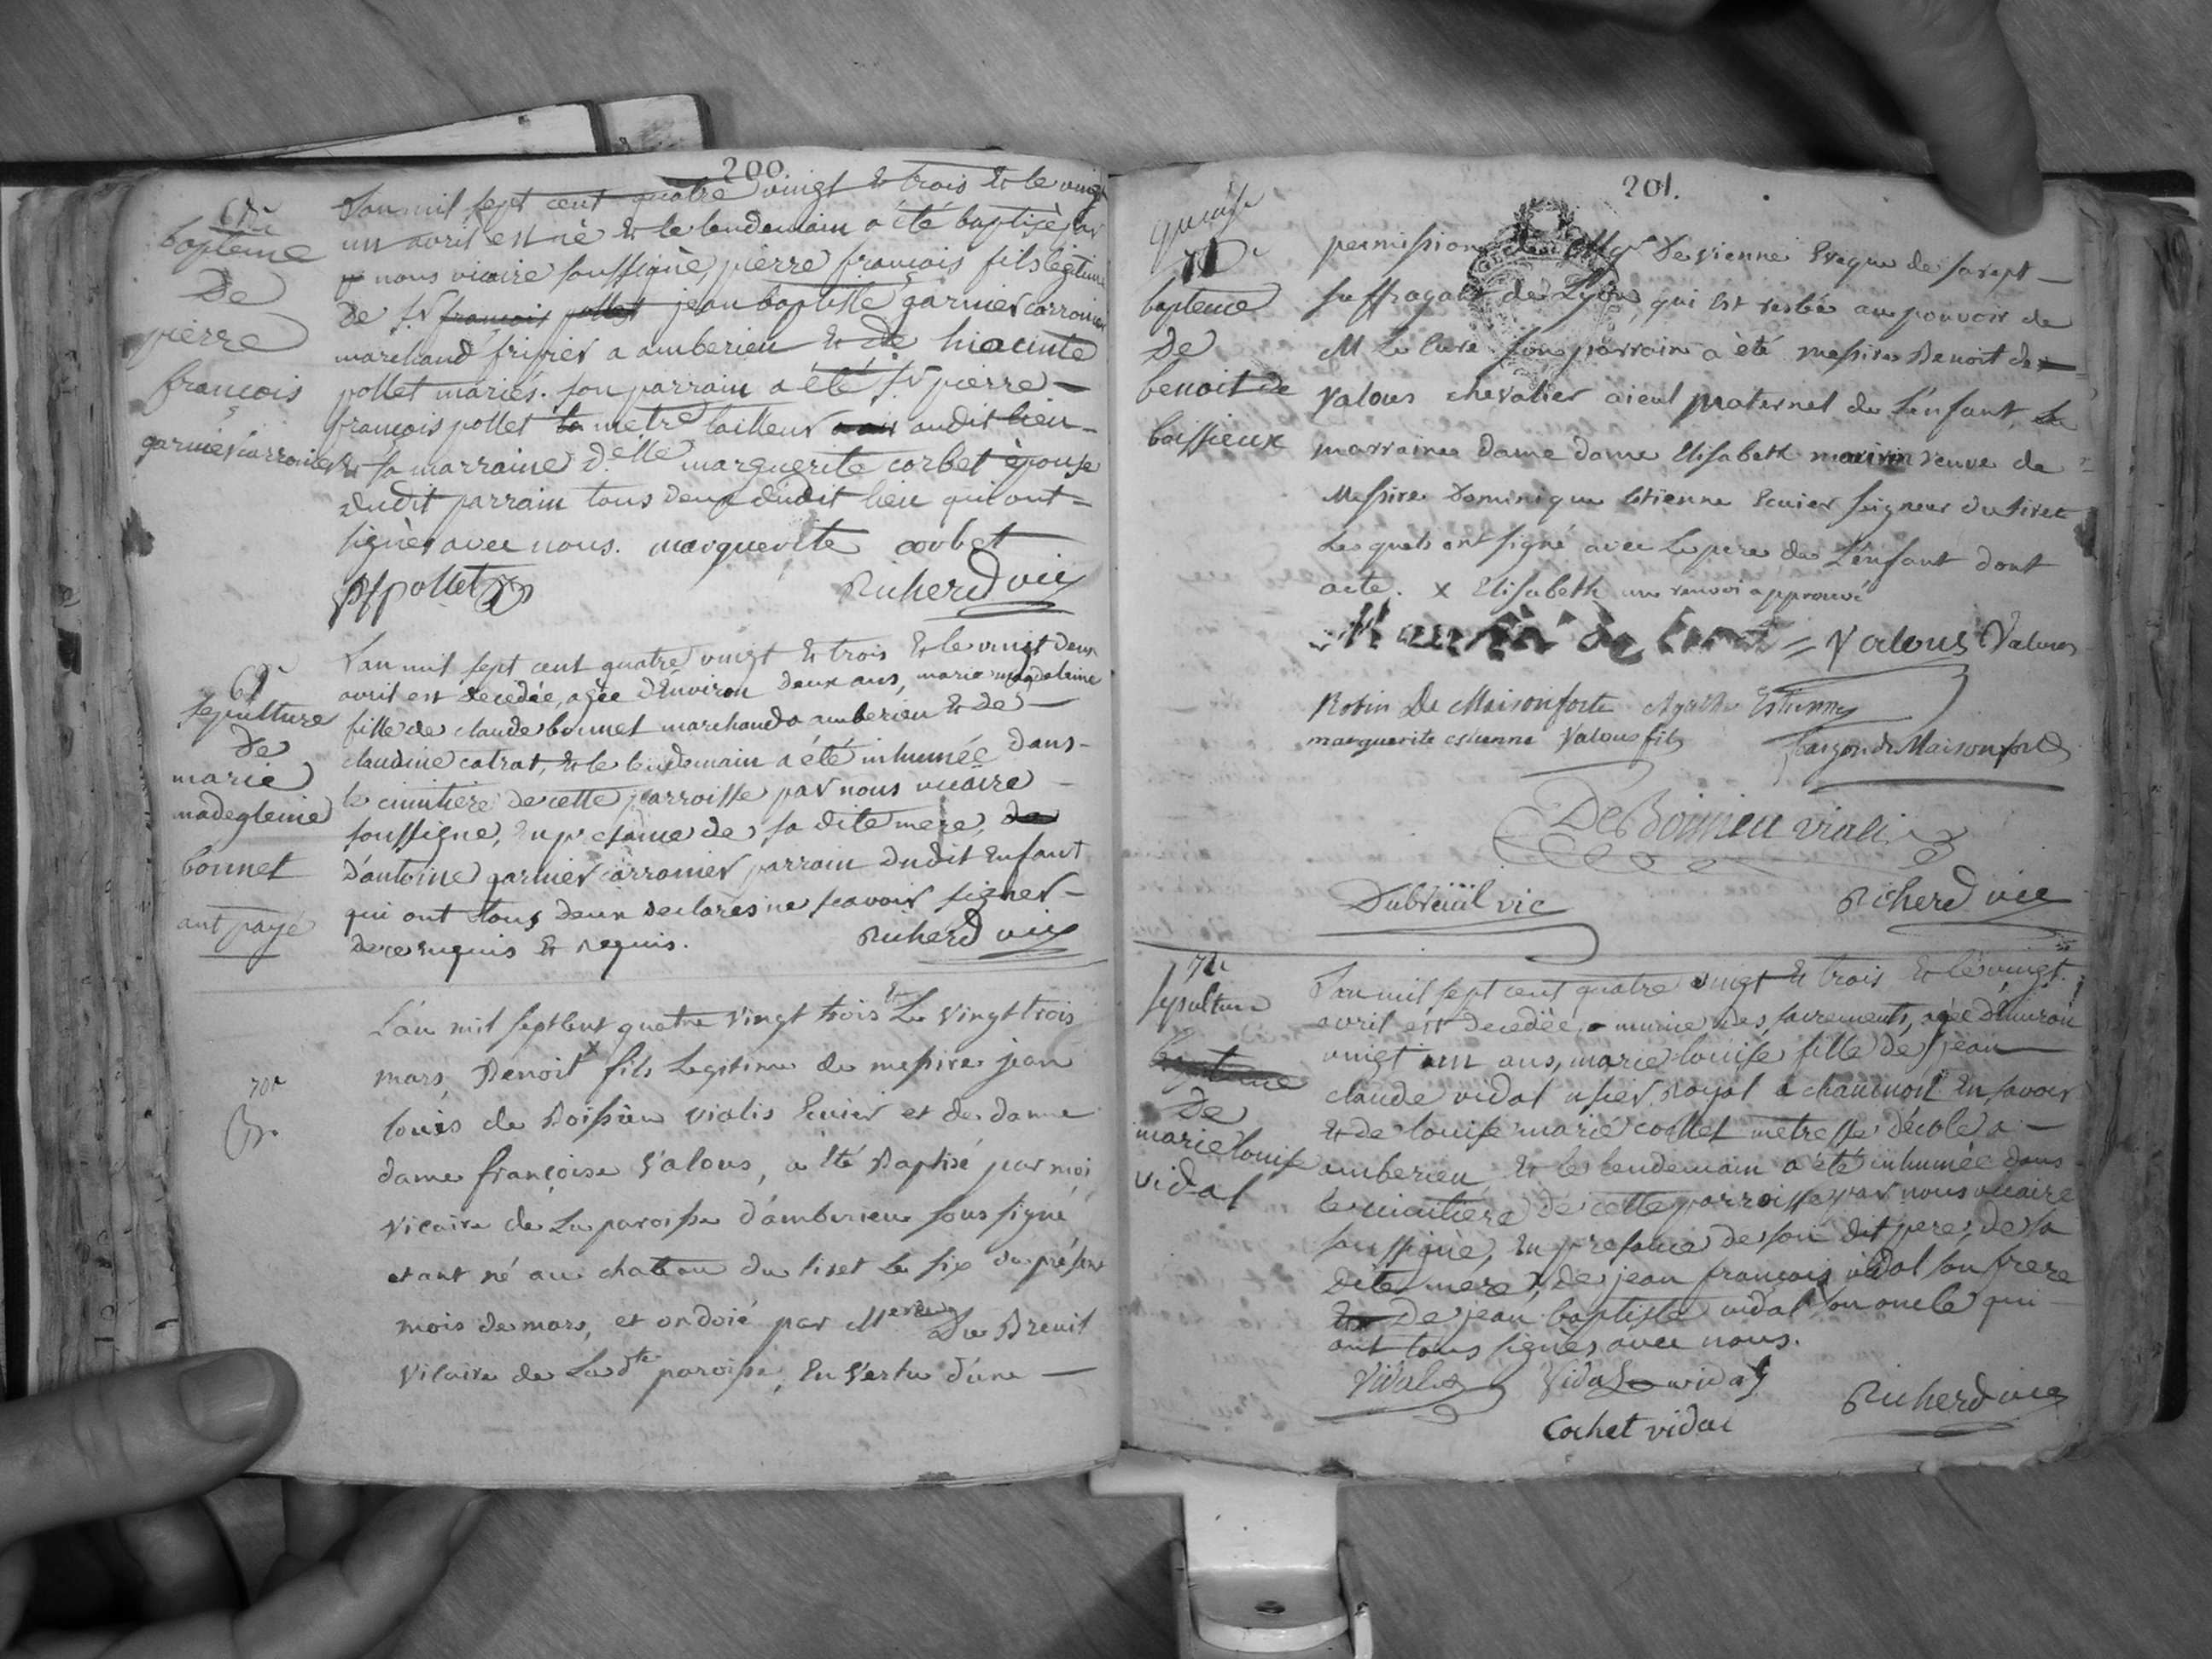 200.
baptême
De
pierre
françois
garnier carronier
L'an mil sept cent quatre vingt et trois et le vingt
un avril est né et le lendemain a été baptisé par
nous vicaire soussigné, pierre françois fils legitime
de sr françois pollet jean baptiste garnier carronier
marchand fripier a amberieu et de hiacinte
pollet mariés. son parrain a été sr pierre
françois pollet metre tailleur audit lieu
et sa marraine d.elle marguerite corbet épouse
dudit parrain tous deux dudit lieu qui ont
signés avec nous. marguerite corbet
pfpollet Richerd vic
sepulture
De
marie
madegleine
bonnet
ont payé
L'an mil sept cent quatre vingt et trois et le vingt deux
avril est decedée, agée d'Environ deux ans, marie magdeleine
fille de claude bonnet marchand a amberieu et de
claudine catrat, et le lendemain a été inhumée dans
le cimitiere de cette parroisse par nous vicaire
soussigné, En presence de sa dite mere,
d'antoine garnier carronier parrain dudit Enfant
qui ont tous deux declarés ne scavoir signer
de ce enquis et requis. Richerd vic
70e
B.
L'an mil sept Cent quatre vingt trois et Le vingt trois
mars, Benoit x fils Legitime de messire jean
louis de Boissieu vialis Ecuier et de dame
dame françoise Valous, a été Baptisé par moi
vicaire de La paroisse d'amberieu sous signé
etant né au chateau du tiret Le six du présent
mois de mars, et ondoié par Du Breuil
vicaire de Ladte paroisse, En vertu d'une
201.
baptême
De
benoit de
boissieux
permission de Mgr De vienne Eveque de sarept
suffragant de Lyon, qui Est restée au pouvoir de
M Le Curé. son parrain a été messire Benoit de
Valous chevalier aieul maternel de L'enfant, La
marraine Dame dame Elisabeth veuve de
Messire Dominique Estienne Ecuier seigneur du tiret
Lesquels ont signé avec Le pere de L'enfant dont
acte. x Elisabeth un renvoi approuvé
Valous Valous
Robin De Maisonforte Agathe Estienne
marguerite estienne Valous fils de Maisonforte
De Boissieu viali
Dubreüil vic Richerd vic
71e
sepulture
De
marie louise
vidal
L'an mil sept cent quatre vingt et trois et le vingt
avril est decedée, munie des sacrements, agée d'Environ
vingt un ans, marie louise fille de jean
claude vidal usier Royal a En savoir
et de louise marie cochet metresse d'écolea
amberieu, et le lendemain a été inhumée dans
le cimitiere de cette parroisse par nous vicaire
soussigné, En presence de son dit pere, de sa
dite mere, de jean françois vidal son frere
De jean baptiste vidal son oncle qui
ont tous signés avec nous.
Vidal Vidal vidal
Cochet vidal Richerd vic